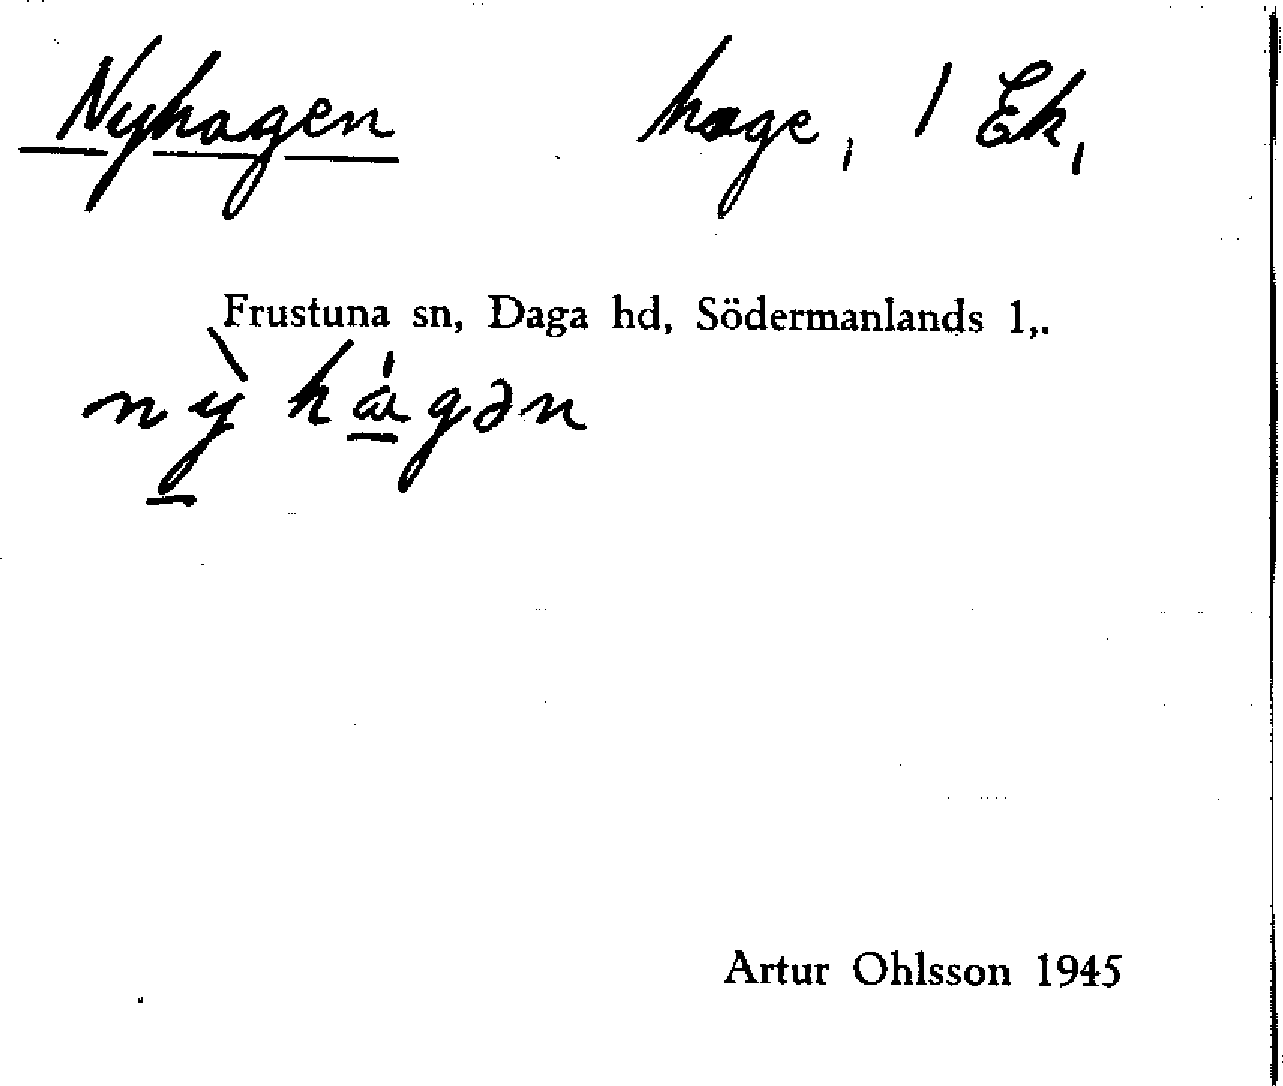 Nyhagen hage, 1 Ek,
Frustuna sn, Daga hd, Södermanlands l,.
nỳ hágən
Artur Ohlsson 1945